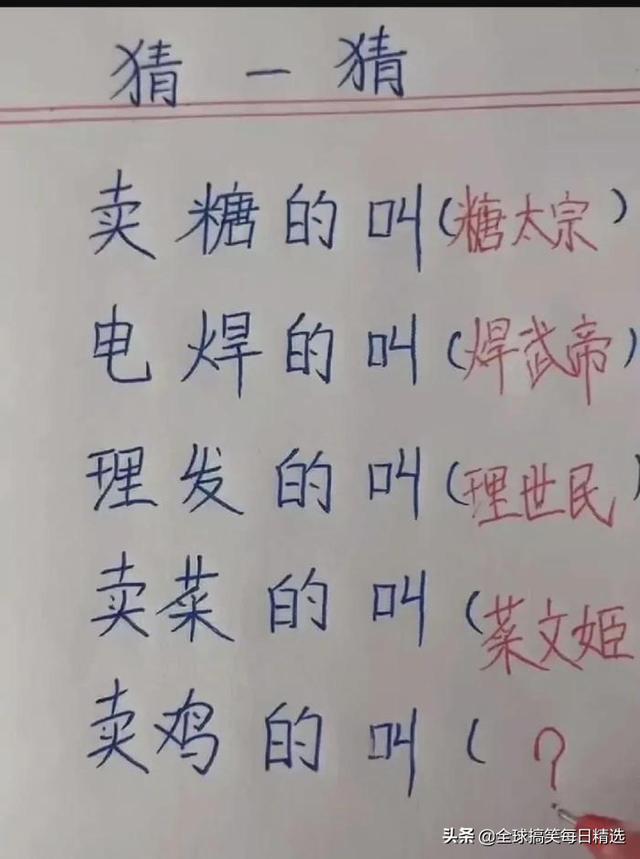 猜一猜
卖糖的叫(糖太宗)
电焊的叫(焊武帝)
理发的叫(理世民)
卖菜的叫(菜文姬
卖鸡的叫( ?
头条 @全球搞笑每日精选